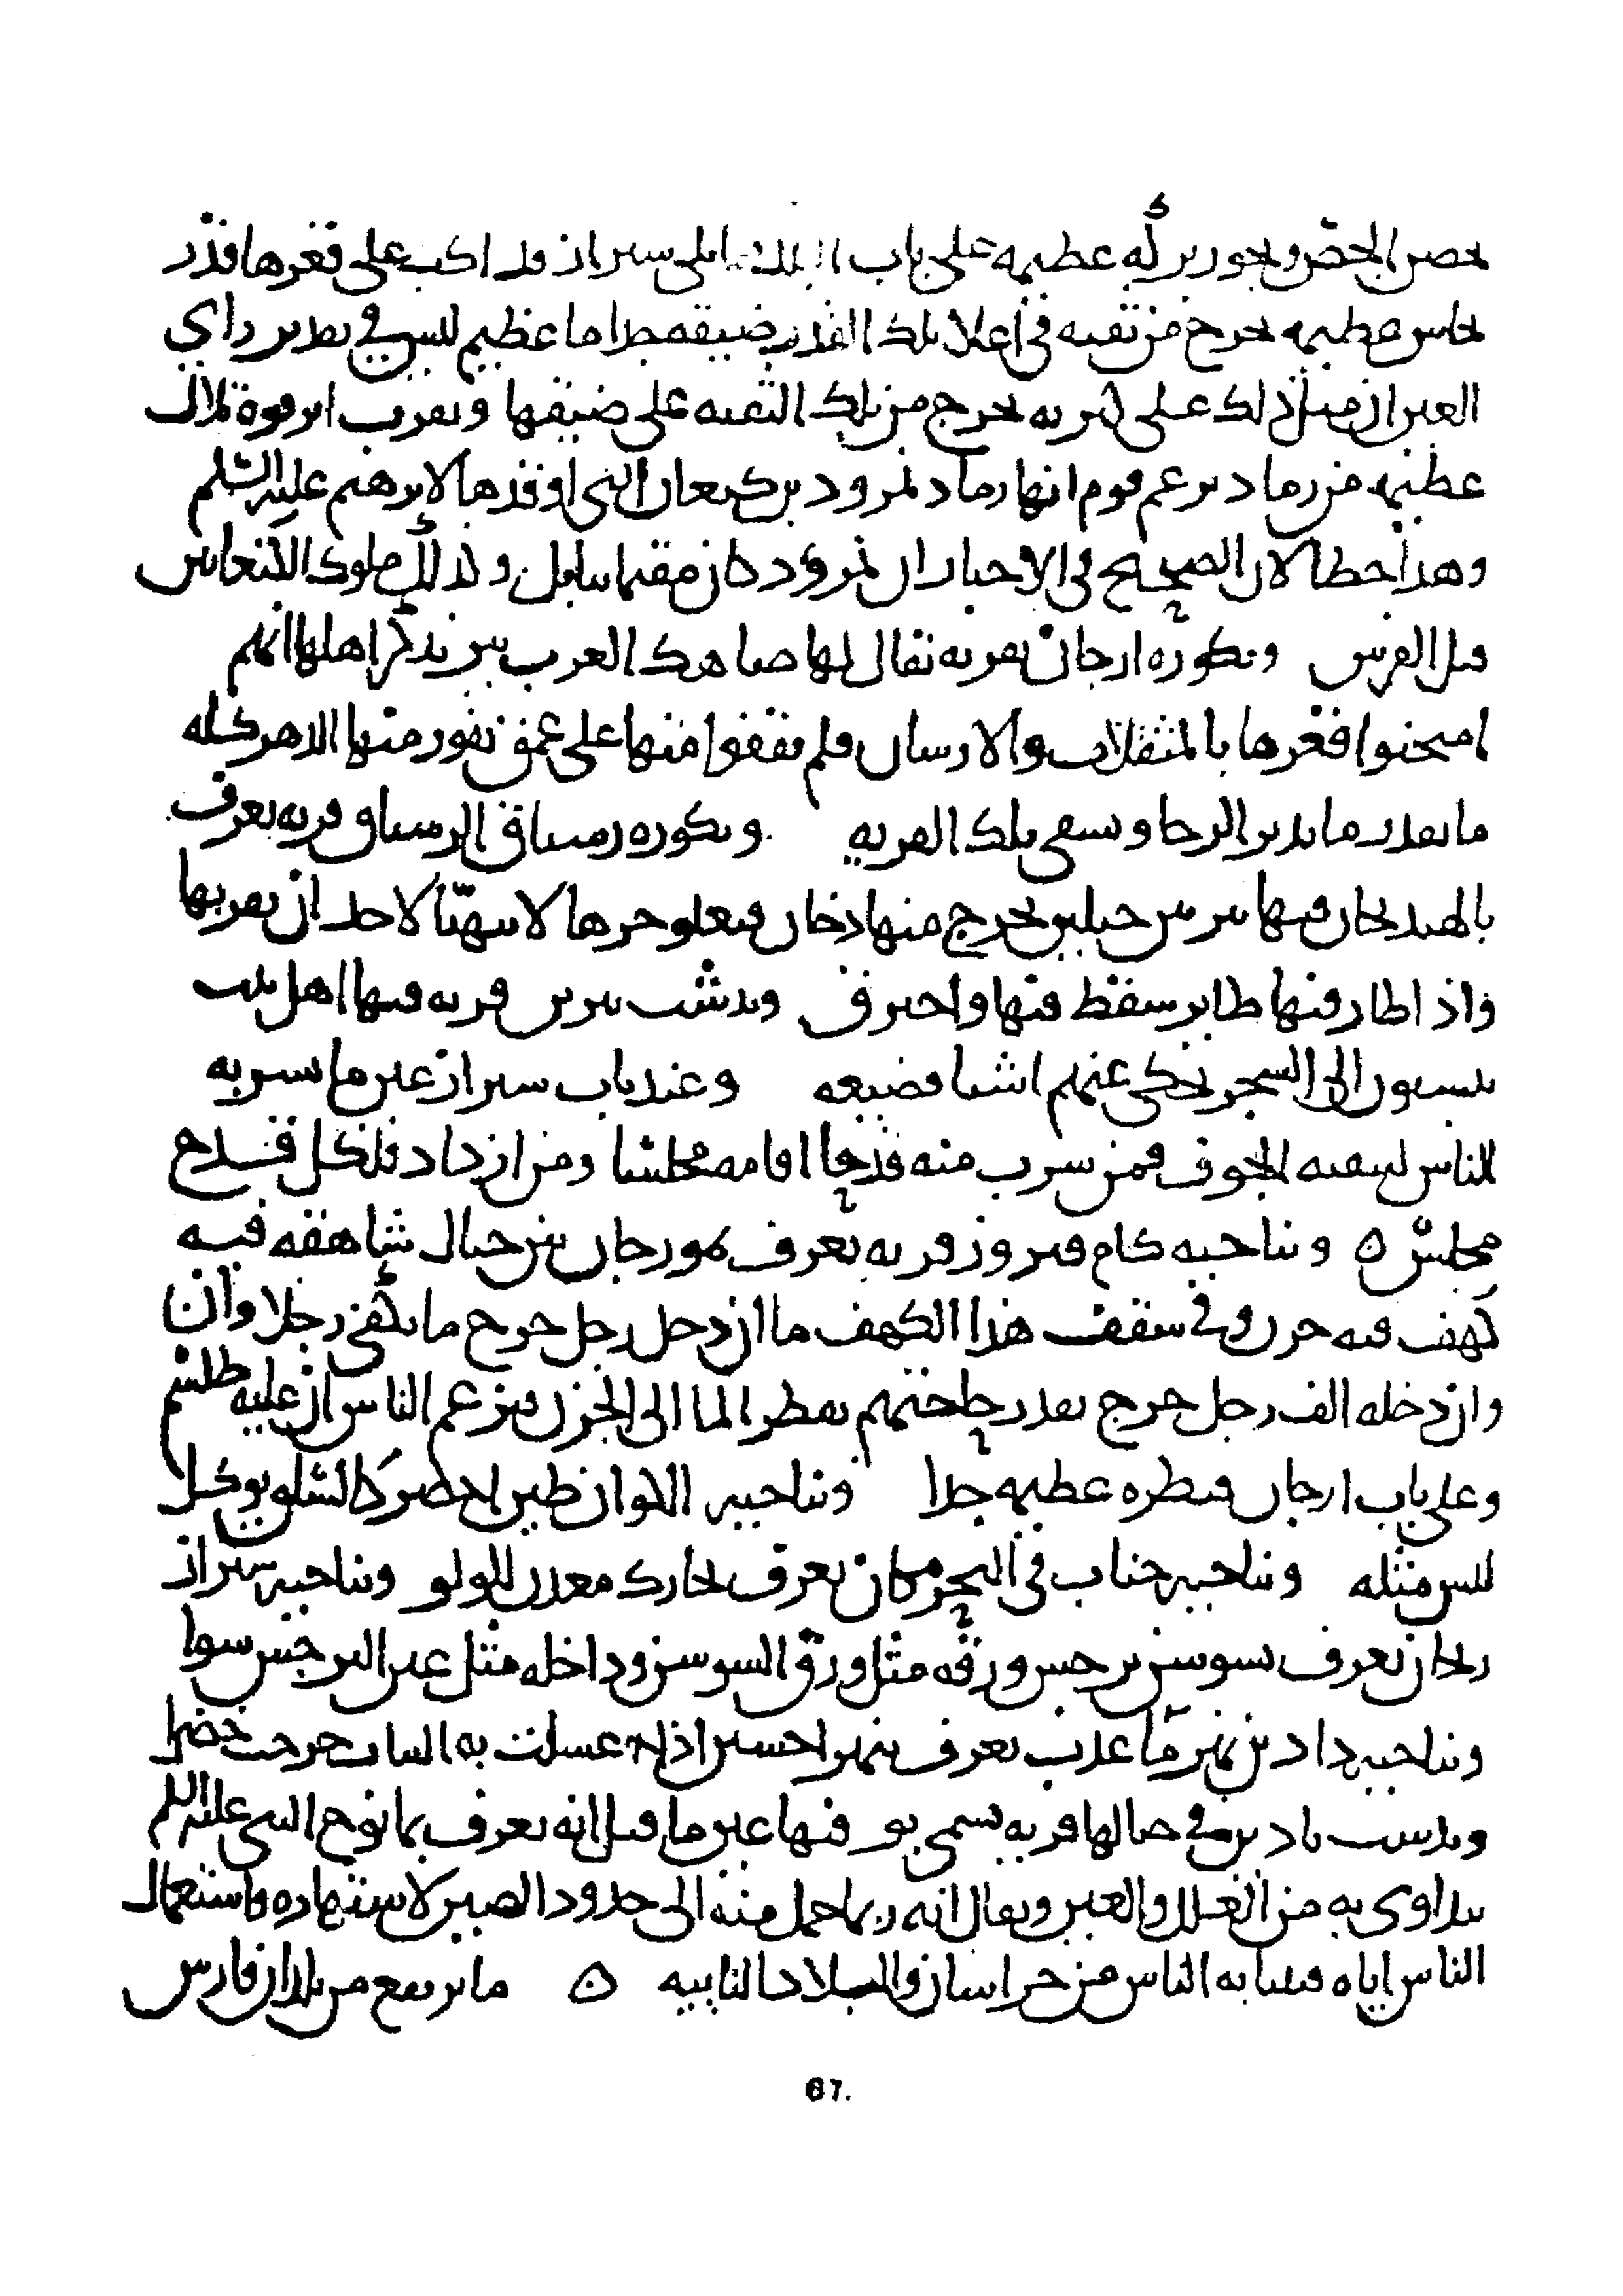 تحصر الخضر وبجور بركه عظيمه على باب البلد مما يلى سيراز قد اكب على قعرها قدر
نحاس عظيمه يخرج من ثقبه في اعلا تلك القدر ضيقه جدا ما عظيم ليس في تقدير راي
العين ان مثل ذلك على كثرته يخرج من تلك الثقبه على ضيقها وبقرب ابرقوه تلال
عظيمه من رماد يزعم قوم انها رماد نمرود بن كنعان التي اوقدها لابرهيم عليه السلم
وهذا خطا لان الصحيح في الاخبار ان نمرود كان مقيما ببابل وكذلك ملوك الكنعانين
قبل الفرس وبكوره ارجان بقريه يقال لها صاهك العرب بير يذكر اهلها انهم
امتحنوا قعرها بالمثقلات والارسان فلم يقفوا منها على عمق يفور منها الدهر كله
ما بقدر ما يدير الرحا ويسقى تلك القريه وبكوره رستاق الرستاق قريه تعرف
بالهنديجان فيها بير بين جبلين يخرج منها دخان فيعلو حرها لا يتهيا لاحد ان يقربها
واذا طار فيها طاير سقط فيها واحترق وبدشت بيرين قريه فيها اهل بيت
ينسبون الى السحر يحكى عنهم اشيا فضيعه وعند باب سيراز عين ما يشربه
الناس لتنقيه الجوف فمن شرب منه قدحا اقامه مجلسا ومن ازداد فلكل قدح
مجلس ٥ وبناحيه كام فيروز قريه تعرف بمورجان بين جبال شاهقه فيه
كهف فيه جرن وفي سقف هذا الكهف ما ان دخل رجل خرج ما يكفي رجلا وان
وان دخله الف رجل خرج بقدر حاجتهم يقطر الما الى الجرن فيزعم الناس ان عليه طلسم
وعلى باب ارجان قنطره عظيمه جدا وبناحيه الاكوان طين اخضر كالسلق يوكل
ليس مثله وبناحيه جناب في البحر مكان يعرف بخارك معدن للولو وبناحيه سيراز
ريحان يعرف بسوسن نرجس ورقه مثل ورق السوسن وداخله مثل عين النرجس سوا
وبناحيه دادين نهر ما عذب يعرف بنهر اخسين اذا غسلت به الثياب خرجت خضرا
وبدست بادين وفي جبالها قريه تسمى بو فيها عين ما قيل انه يعرف بما نوح النبي عليه السلم
يتداوى به من العلل والعين ويقال انه ربما حمل منه الى حدود الصين لاشتهاره واستعمال
الناس اياه فينتابه الناس من خراسان والبلاد النايبه ٥ ما يرتفع من بلدان فارس
67.